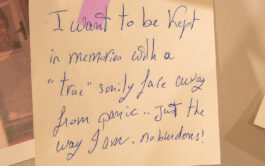 I want to be kept
in memories with a
"true" smily face away
from panic.. just the
way I am. no blunders!